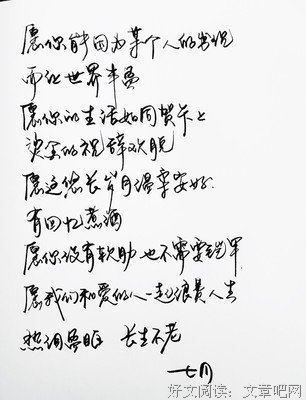 愿你能因为某个人的出现
而让世界丰盈
愿你的生活如同贺卡上
烫金的祝辞欢脱
愿这悠长岁月温柔安好
有回忆煮酒
愿你没有软肋也不需要铠甲
愿我们和爱的人一起浪费人生
热泪圆眶 长生不老
七月
好文阅读：文章吧网